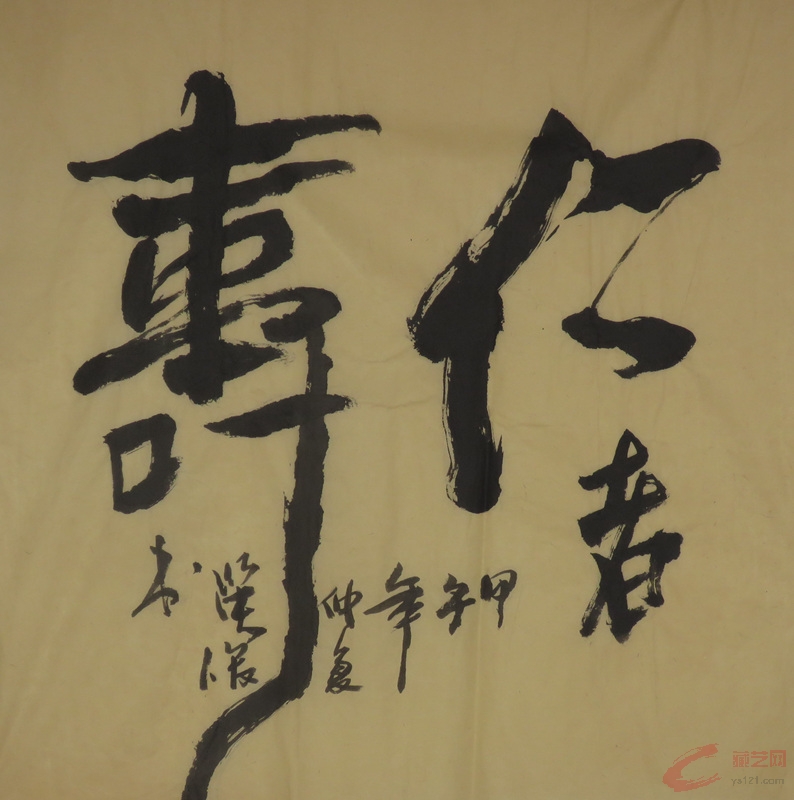 仁者
壽
甲午年仲夏
书
藏艺网
ya121.com